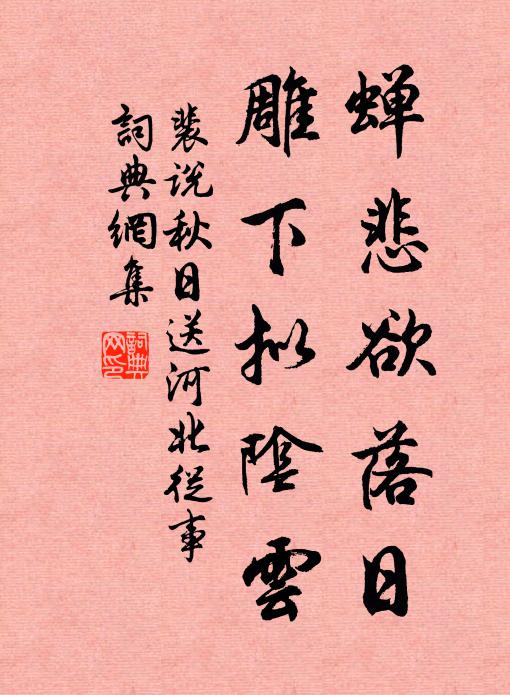 蝉悲欲落日
雕下拟陰雲
裴说秋日送河北從事
詞典網集
詞典網印